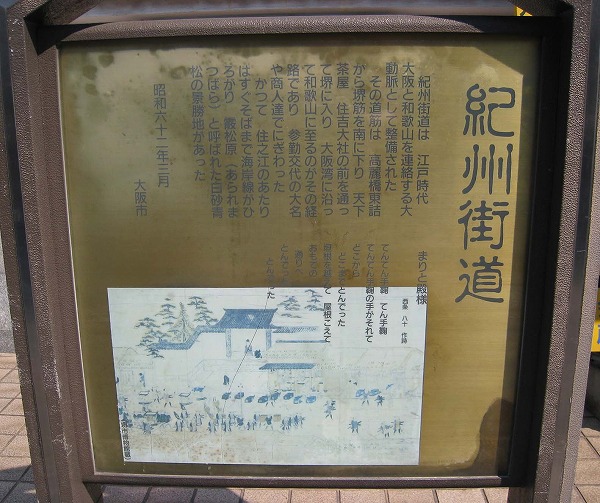 紀州街道
紀州街道は 江戸時代
大阪と和歌山を連絡する大
動脈として整備された
その道筋は 高麗橋東詰
から堺筋を南に下り 天下
茶屋 住吉大社の前を通っ
て堺に入り 大阪湾に沿っ
て和歌山に至るのがその経
路であり 参勤交代の大名
や商人達でにぎわった
かつて 住之江のあたり
はすぐそばまで海岸線がひ
ろがり 霰松原（あられま
つばら）と呼ばれた白砂青
松の景勝地があった
昭和六十二年三月
大阪市
まりと殿様
西條 八十 作詩
てんてん手鞠 てん手鞠
てんてん手鞠の手がそれて
どこから
どこまでとんでった
垣根を越えて 屋根こえて
おもての
通りへ
とんでった
とんでった